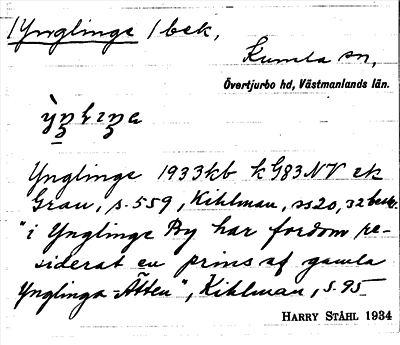 /Ynglinge / bek,
Kumla sn,
Övertjurbo hd, Västmanlands län.
Ynglinge 1933 kb k G83 NV ek
Grau, s. 559, Kihlman, ss 20, 32
"i Ynglinge By har fordom re-
siderat en prins af gamla
Ynglinga-Ätten", Kihlman, s. 95
HARRY STÅHL 1934